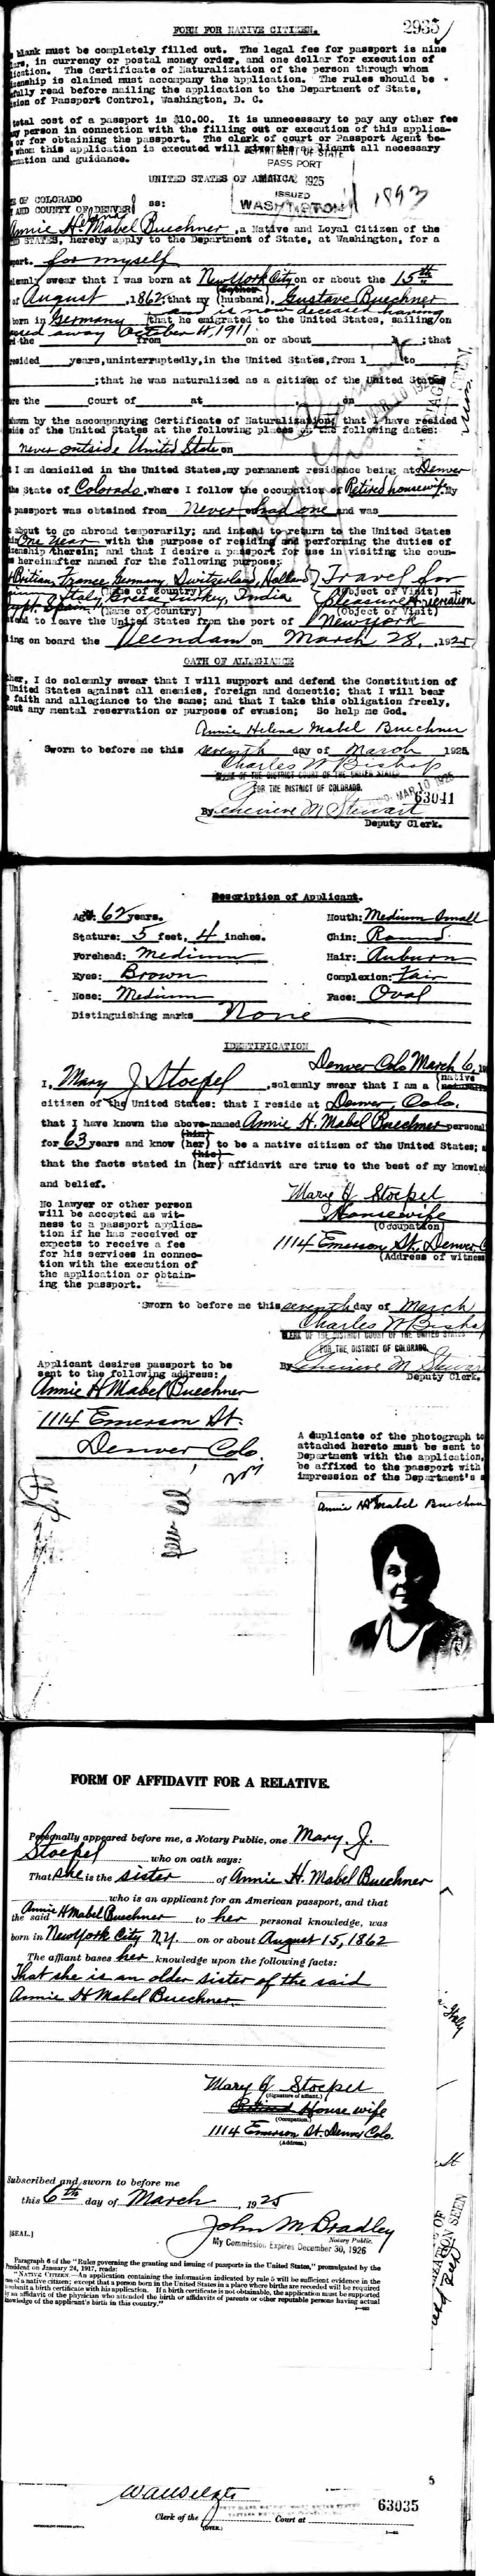 FORM FOR NATIVE CITIZEN.
2935
blank must be completely filled out. The legal fee for passport is nine
in currency or postal money order, and one dollar for execution of
The Certificate of Naturalization of the person through whom
is claimed must accompany the application. The rules should be
read before mailing the application to the Department of State,
of Passport Control, Washington, D. C.
total cost of a passport is $10.00. It is unnecessary to pay any other fee
person in connection with the filling out or execution of this applica-
or for obtaining the passport. The clerk of court or Passport Agent be-
whom this application is executed will give the applicant all necessary
and guidance.
DEPARTMENT OF STATE
PASSPORT
UNITED STATES OF AMERICA 1925
ISSUED
WASHINGTON
1893
OF COLORADO
AND COUNTY OF DENVER ss:
Annie H. Mabel Buechner, a Native and Loyal Citizen of the
STATES, hereby apply to the Department of State, at Washington, for a
for myself
swear that I was born at New York City on or about the 15th
of August, 1862; that my (father) (husband), Gustave Buechner
and is now deceased having
born in Germany that he emigrated to the United States, sailing on
away October 4, 1911
the from on or about ; that
resided years, uninterruptedly, in the United States, from 1 to
; that he was naturalized as a citizen of the United States
the Court of at , on
by the accompanying Certificate of Naturalization; that I have resided
of the United States at the following places on the following dates:
never outside United State on
I am domiciled in the United States, my permanent residence being at Denver
the State of Colorado, where I follow the occupation of Retired housewife. My
passport was obtained from never had one and was
about to go abroad temporarily; and intend to return to the United States
One Year with the purpose of residing and performing the duties of
therein; and that I desire a passport for use in visiting the coun-
hereinafter named for the following purpose:
Britian, France, Germany, Switzerland, Holland Travel for
(Name of Country) (Object of Visit)
Italy, Greece, Turkey, India pleasure & recreation
Spain (Name of Country) (Object of Visit)
to leave the United States from the port of New York
on board the Veendam on March 28, 1925
OATH OF ALLEGIANCE
I do solemnly swear that I will support and defend the Constitution of
United States against all enemies, foreign and domestic; that I will bear
faith and allegiance to the same; and that I take this obligation freely,
any mental reservation or purpose of evasion; So help me God.
Annie Helena Mabel Buechner
Sworn to before me this seventh day of March 1925
Charles W Bishop
CLERK OF THE DISTRICT COURT OF THE UNITED STATES
FOR THE DISTRICT OF COLORADO.
MAR 10 1925
63041
By Genevieve M Stewart
Deputy Clerk.
Description of Applicant.
Age: 62 years. Mouth: Medium Small
Stature: 5 feet, 4 inches. Chin: Round
Forehead: Medium Hair: Auburn
Eyes: Brown Complexion: Fair
Nose: Medium Face: Oval
Distinguishing marks None
IDENTIFICATION
Denver Colo March 6, 19
I, Mary J Stoepel, solemnly swear that I am a (native
citizen of the United States; that I reside at Denver, Colo.
that I have known the above-named Annie H. Mabel Buechner personal
for 63 years and know (him) (her) to be a native citizen of the United States;
that the facts stated in (his) (her) affidavit are true to the best of my knowled
and belief.
Mary J Stoepel
No lawyer or other person
will be accepted as wit-
ness to a passport applica-
tion if he has received or
expects to receive a fee
for his services in connec-
tion with the execution of
the application or obtain-
ing the passport.
Housewife
(Occupation)
1114 Emerson St, Denver C
(Address of witness
Sworn to before me this seventh day of March
Charles W Bisho
CLERK OF THE DISTRICT COURT OF THE UNITED STATES
FOR THE DISTRICT OF COLORADO.
By Genevieve M Stewar
Deputy Clerk.
Applicant desires passport to be
sent to the following address:
Annie H Mabel Buechner
1114 Emerson St.
Denver Colo
A duplicate of the photograph to
attached hereto must be sent to
Department with the application,
be affixed to the passport with
impression of the Department's
Annie H Mabel Buechner
FORM OF AFFIDAVIT FOR A RELATIVE.
Personally appeared before me, a Notary Public, one Mary. J.
Stoepel who on oath says:
That she is the sister of Annie H. Mabel Buechner
who is an applicant for an American passport, and that
the said Annie H Mabel Buechner to her personal knowledge, was
born in New York City N.Y. on or about August 15, 1862
The affiant bases her knowledge upon the following facts:
That she is an older sister of the said
Annie H Mabel Buechner
Mary J Stoepel
(Signature of affiant.)
Retired House wife
(Occupation.)
1114 Emerson St. Denver Colo.
(Address.)
Subscribed and sworn to before me
this 6th day of March, 1925
John M Bradley
[SEAL.] Notary Public.
My Commission Expires December 30, 1926
Paragraph 6 of the "Rules governing the granting and issuing of passports in the United States," promulgated by the
President on January 24, 1917, reads:
"NATIVE CITIZEN.—An application containing the information indicated by rule 5 will be sufficient evidence in the
case of a native citizen; except that a person born in the United States in a place where births are recorded will be required
to submit a birth certificate with his application. If a birth certificate is not obtainable, the application must be supported
by an affidavit of the physician who attended the birth or affidavits of parents or other reputable persons having actual
knowledge of the applicant's birth in this country."
5
Clerk of the Court at
63035
(OVER.)